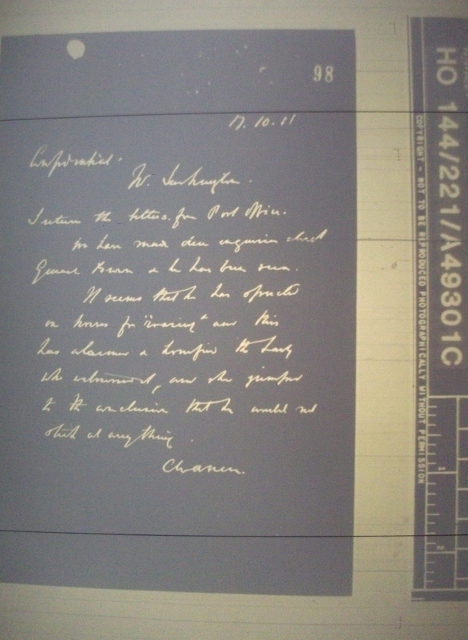 98
17.10.88
Confidential.
Mr.
I return the letters from Post Office.
We have made due enquiries about
General Brown & he has been seen.
It seems that he has operated
on horses for "roaring" and this
has alarmed & horrified the lady
who, and she jumped
to the conclusion that he would not
stick at anything.
HO 144/221/A49301C
COPYRIGHT - NOT TO BE REPRODUCED PHOTOGRAPHICALLY WITHOUT PERMISSION
1
2